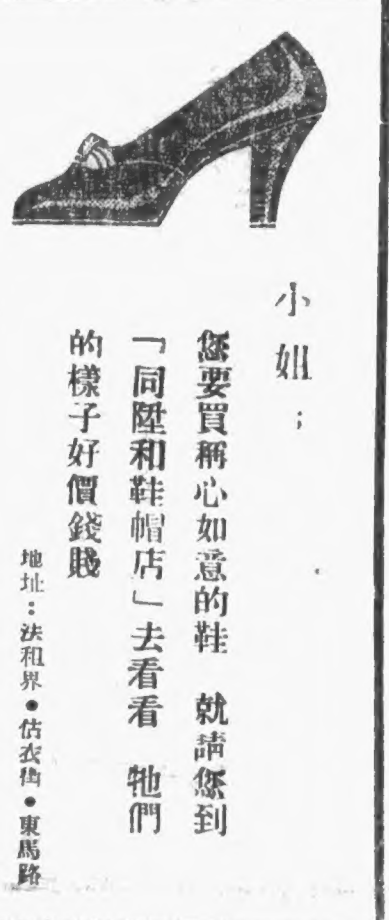 小姐；
您要買稱心如意的鞋　就請您到
「同陞和鞋帽店」去看看　牠們
的樣子好價錢賤
地址：法租界•估衣街•東馬路